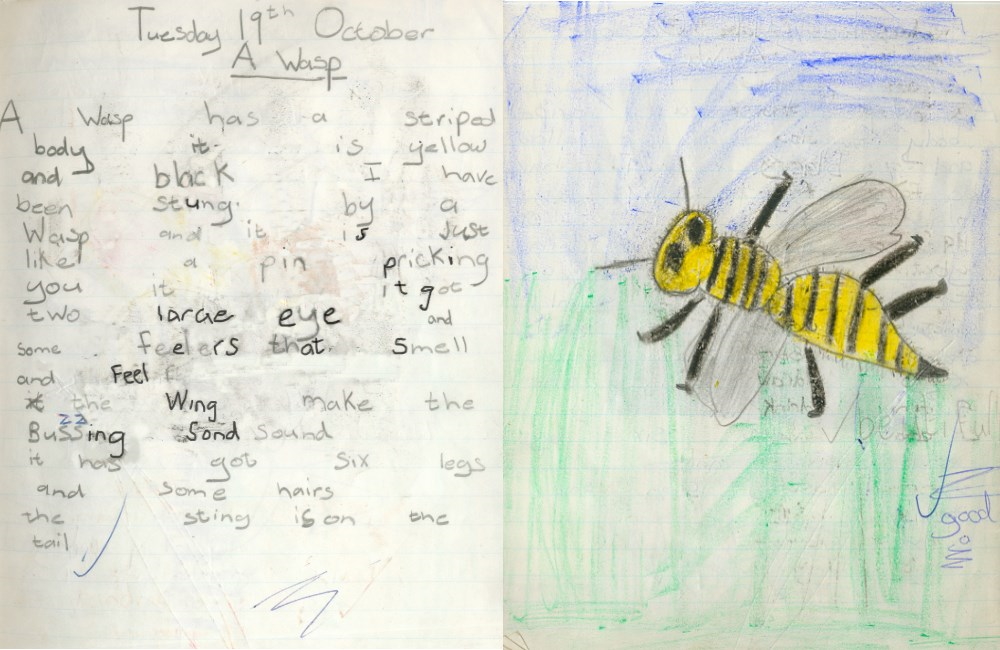 Tuesday 19th October
A Wasp
A Wasp has a striped
body it is yellow
and black I have
been stung by a
Wasp and it is Just
like a pin pricking
you it it got
two large eye and
some feelers that smell
and Feel
the Wing make the
zz
Bussing Sond Sound
it has got six legs
and some hairs
the sting is on the
tail
good